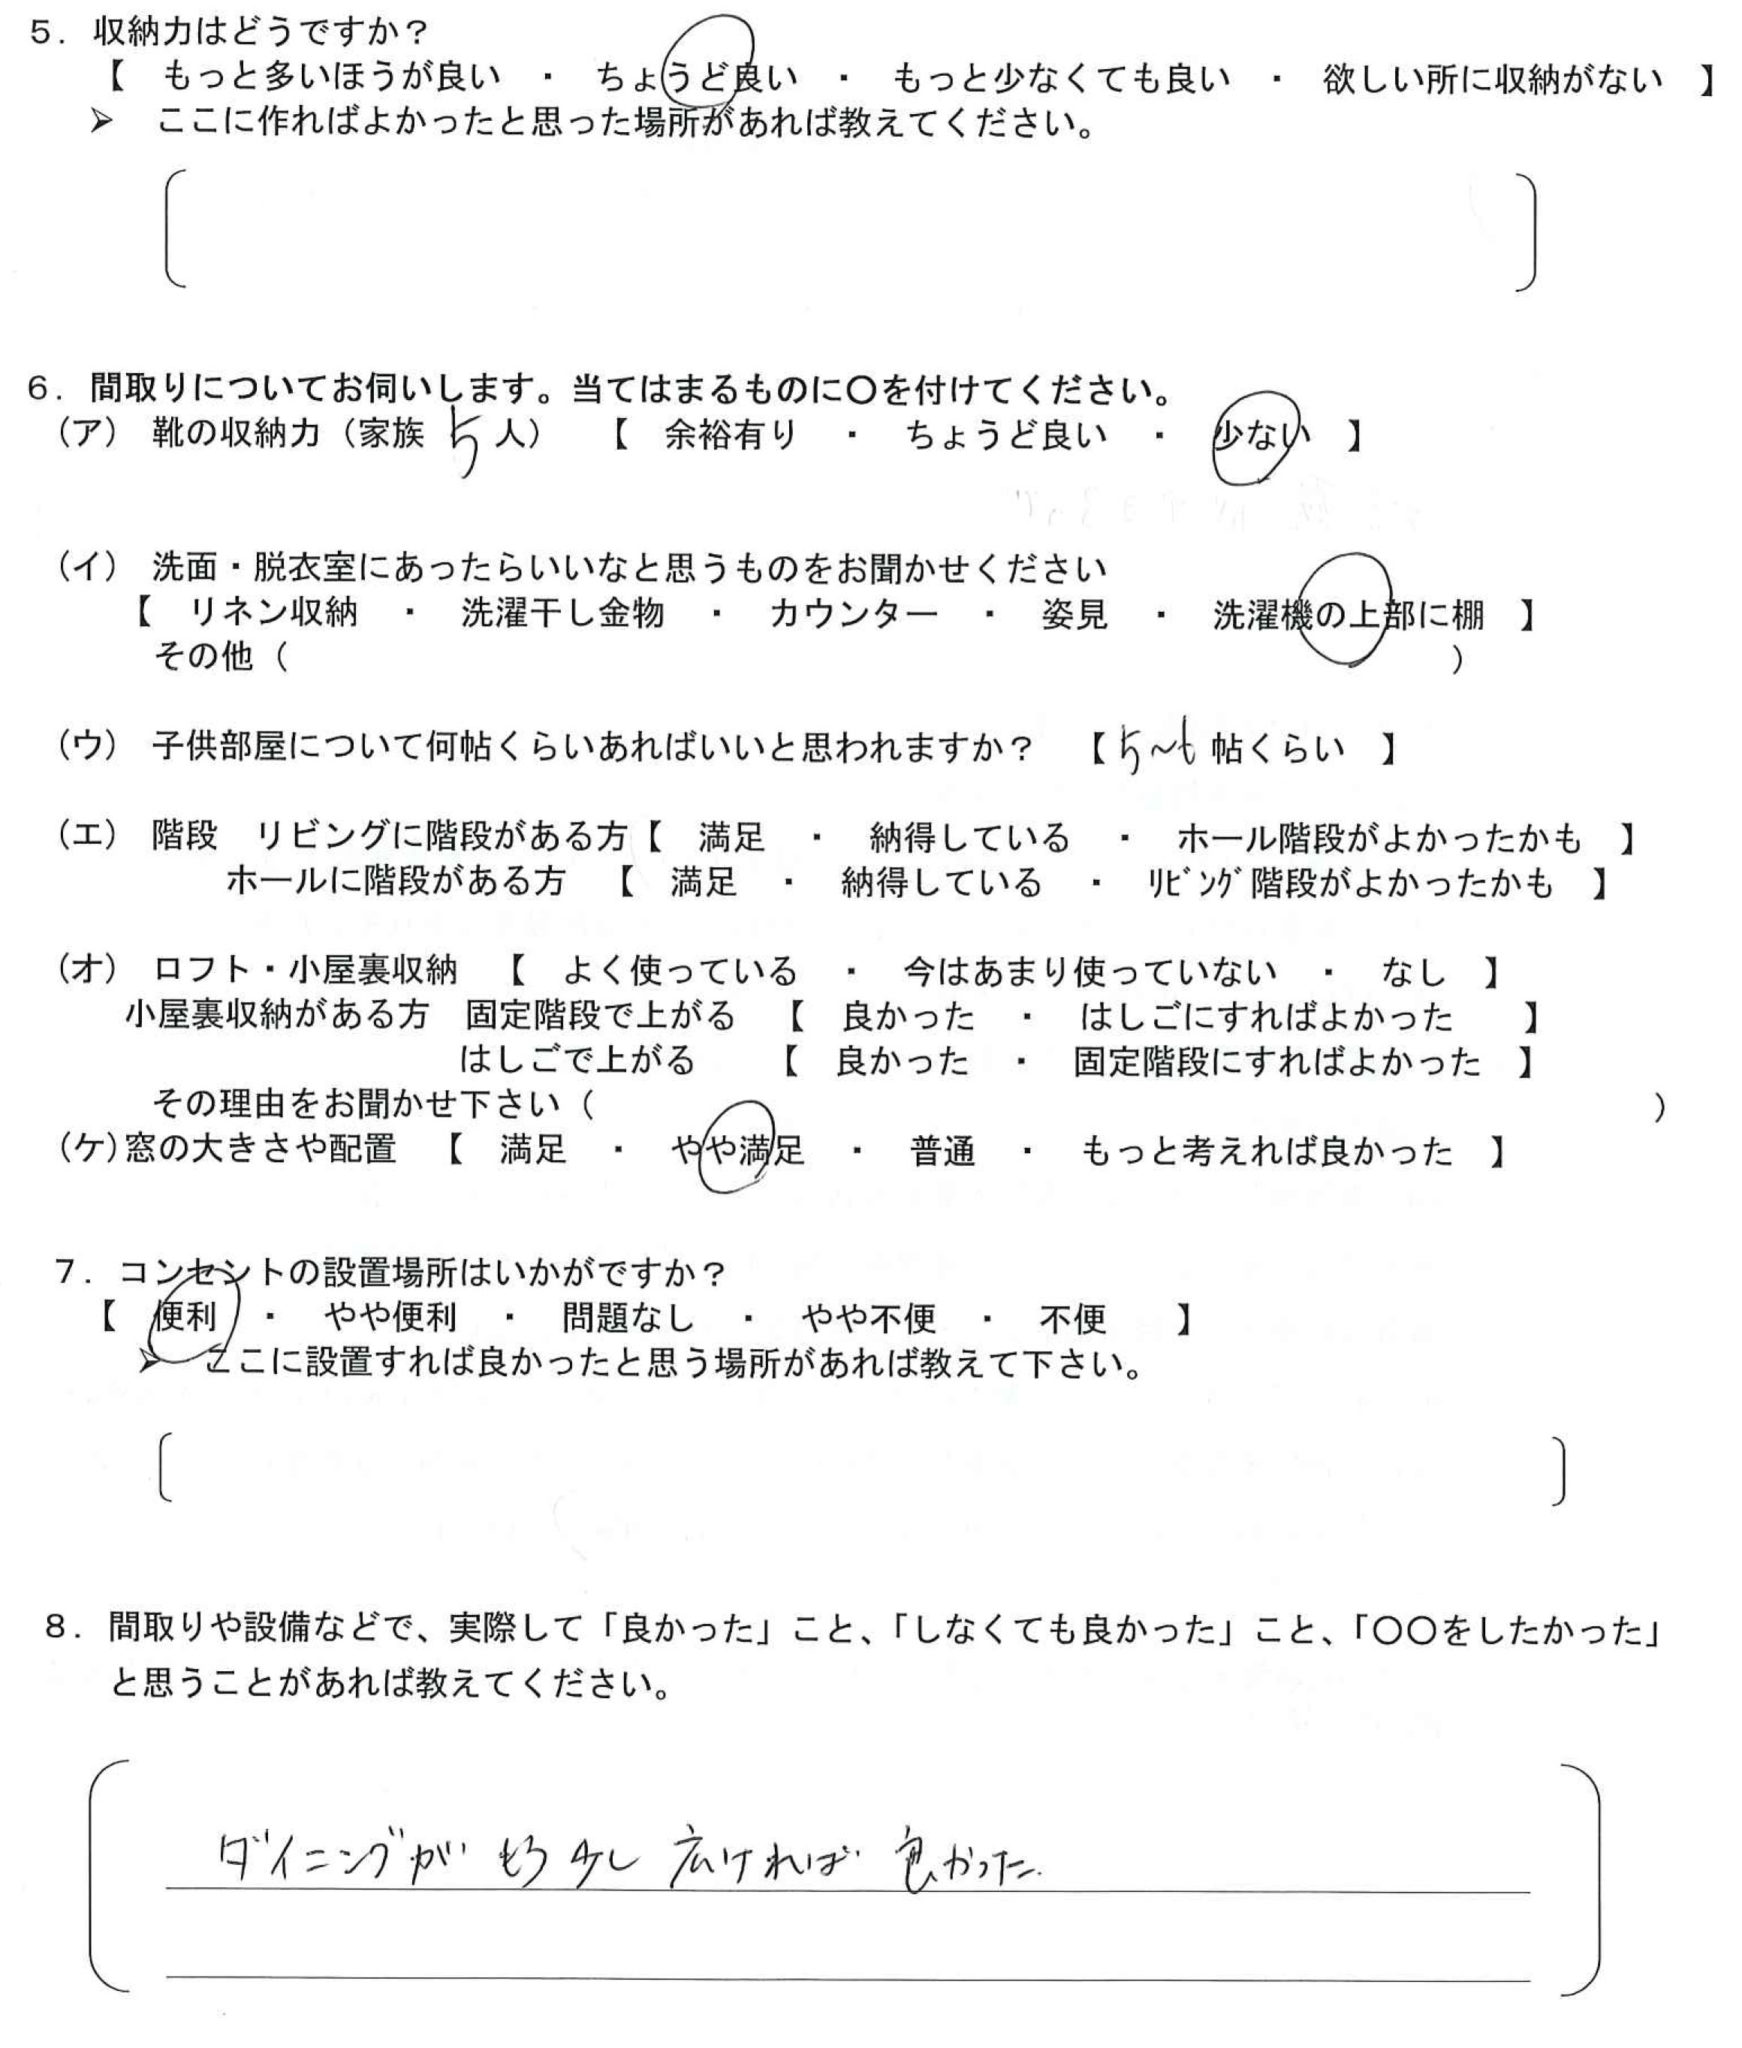 ５．収納力はどうですか？
【　もっと多いほうが良い　・　ちょうど良い　・　もっと少なくても良い　・　欲しい所に収納がない　】
➢　ここに作ればよかったと思った場所があれば教えてください。
６．間取りについてお伺いします。当てはまるものに〇を付けてください。
（ア）　靴の収納力（家族 5 人）　【　余裕有り　・　ちょうど良い　・　少ない　】
（イ）　洗面・脱衣室にあったらいいなと思うものをお聞かせください
【　リネン収納　・　洗濯干し金物　・　カウンター　・　姿見　・　洗濯機の上部に棚　】
その他（　　　　）
（ウ）　子供部屋について何帖くらいあればいいと思われますか？　【 5～6 帖くらい　】
（エ）　階段　リビングに階段がある方【　満足　・　納得している　・　ホール階段がよかったかも　】
ホールに階段がある方　【　満足　・　納得している　・　ﾘﾋﾞﾝｸﾞ階段がよかったかも　】
（オ）　ロフト・小屋裏収納　【　よく使っている　・　今はあまり使っていない　・　なし　】
小屋裏収納がある方　固定階段で上がる　【　良かった　・　はしごにすればよかった　】
はしごで上がる　【　良かった　・　固定階段にすればよかった　】
その理由をお聞かせ下さい（　　　　）
（ケ）窓の大きさや配置　【　満足　・　やや満足　・　普通　・　もっと考えれば良かった　】
７．コンセントの設置場所はいかがですか？
【　便利　・　やや便利　・　問題なし　・　やや不便　・　不便　】
➢　ここに設置すれば良かったと思う場所があれば教えて下さい。
８．間取りや設備などで、実際して「良かった」こと、「しなくても良かった」こと、「〇〇をしたかった」
と思うことがあれば教えてください。
ダイニングが もう少し 広ければ 良かった.